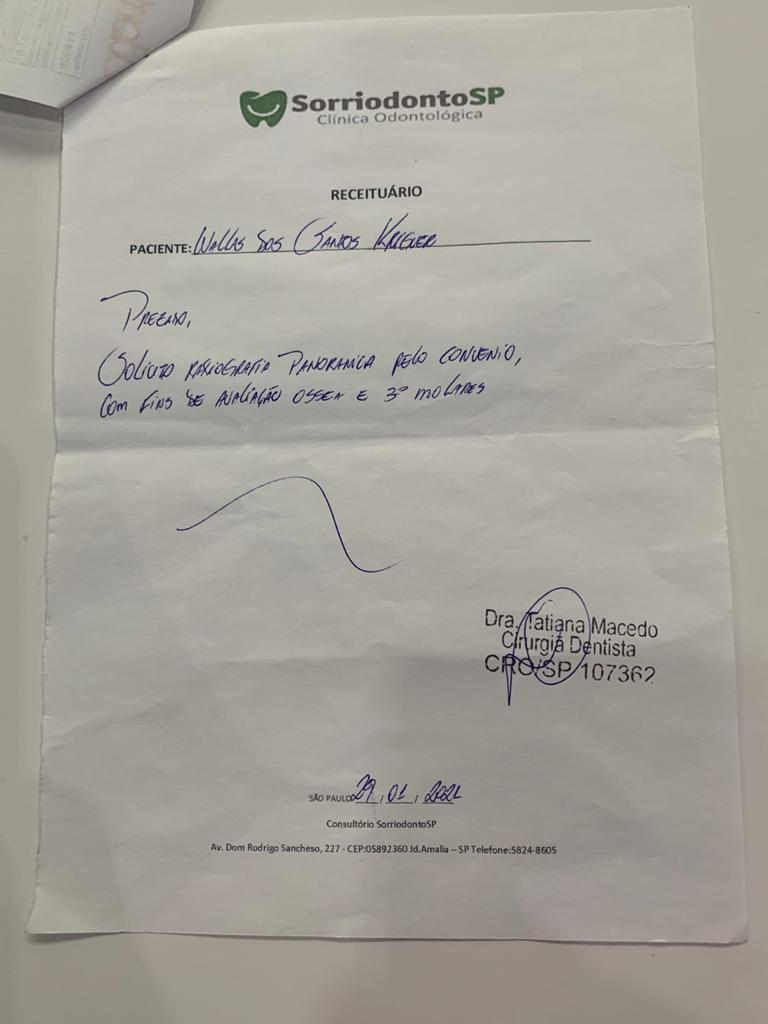 SorriodontoSP
Clínica Odontológica
RECEITUÁRIO
PACIENTE: Wallas dos Santos Krieger
Prezado,
Solicito radiografia panoramica pelo convenio,
com fins de avaliação ossea e 3º molares
Dra. Tatiana Macedo
Cirurgiã Dentista
CRO/SP 107362
SÃO PAULO 29, 01, 2021
Consultório SorriodontoSP
Av. Dom Rodrigo Sancheso, 227 - CEP:05892360 Jd.Amalia – SP Telefone:5824-8605